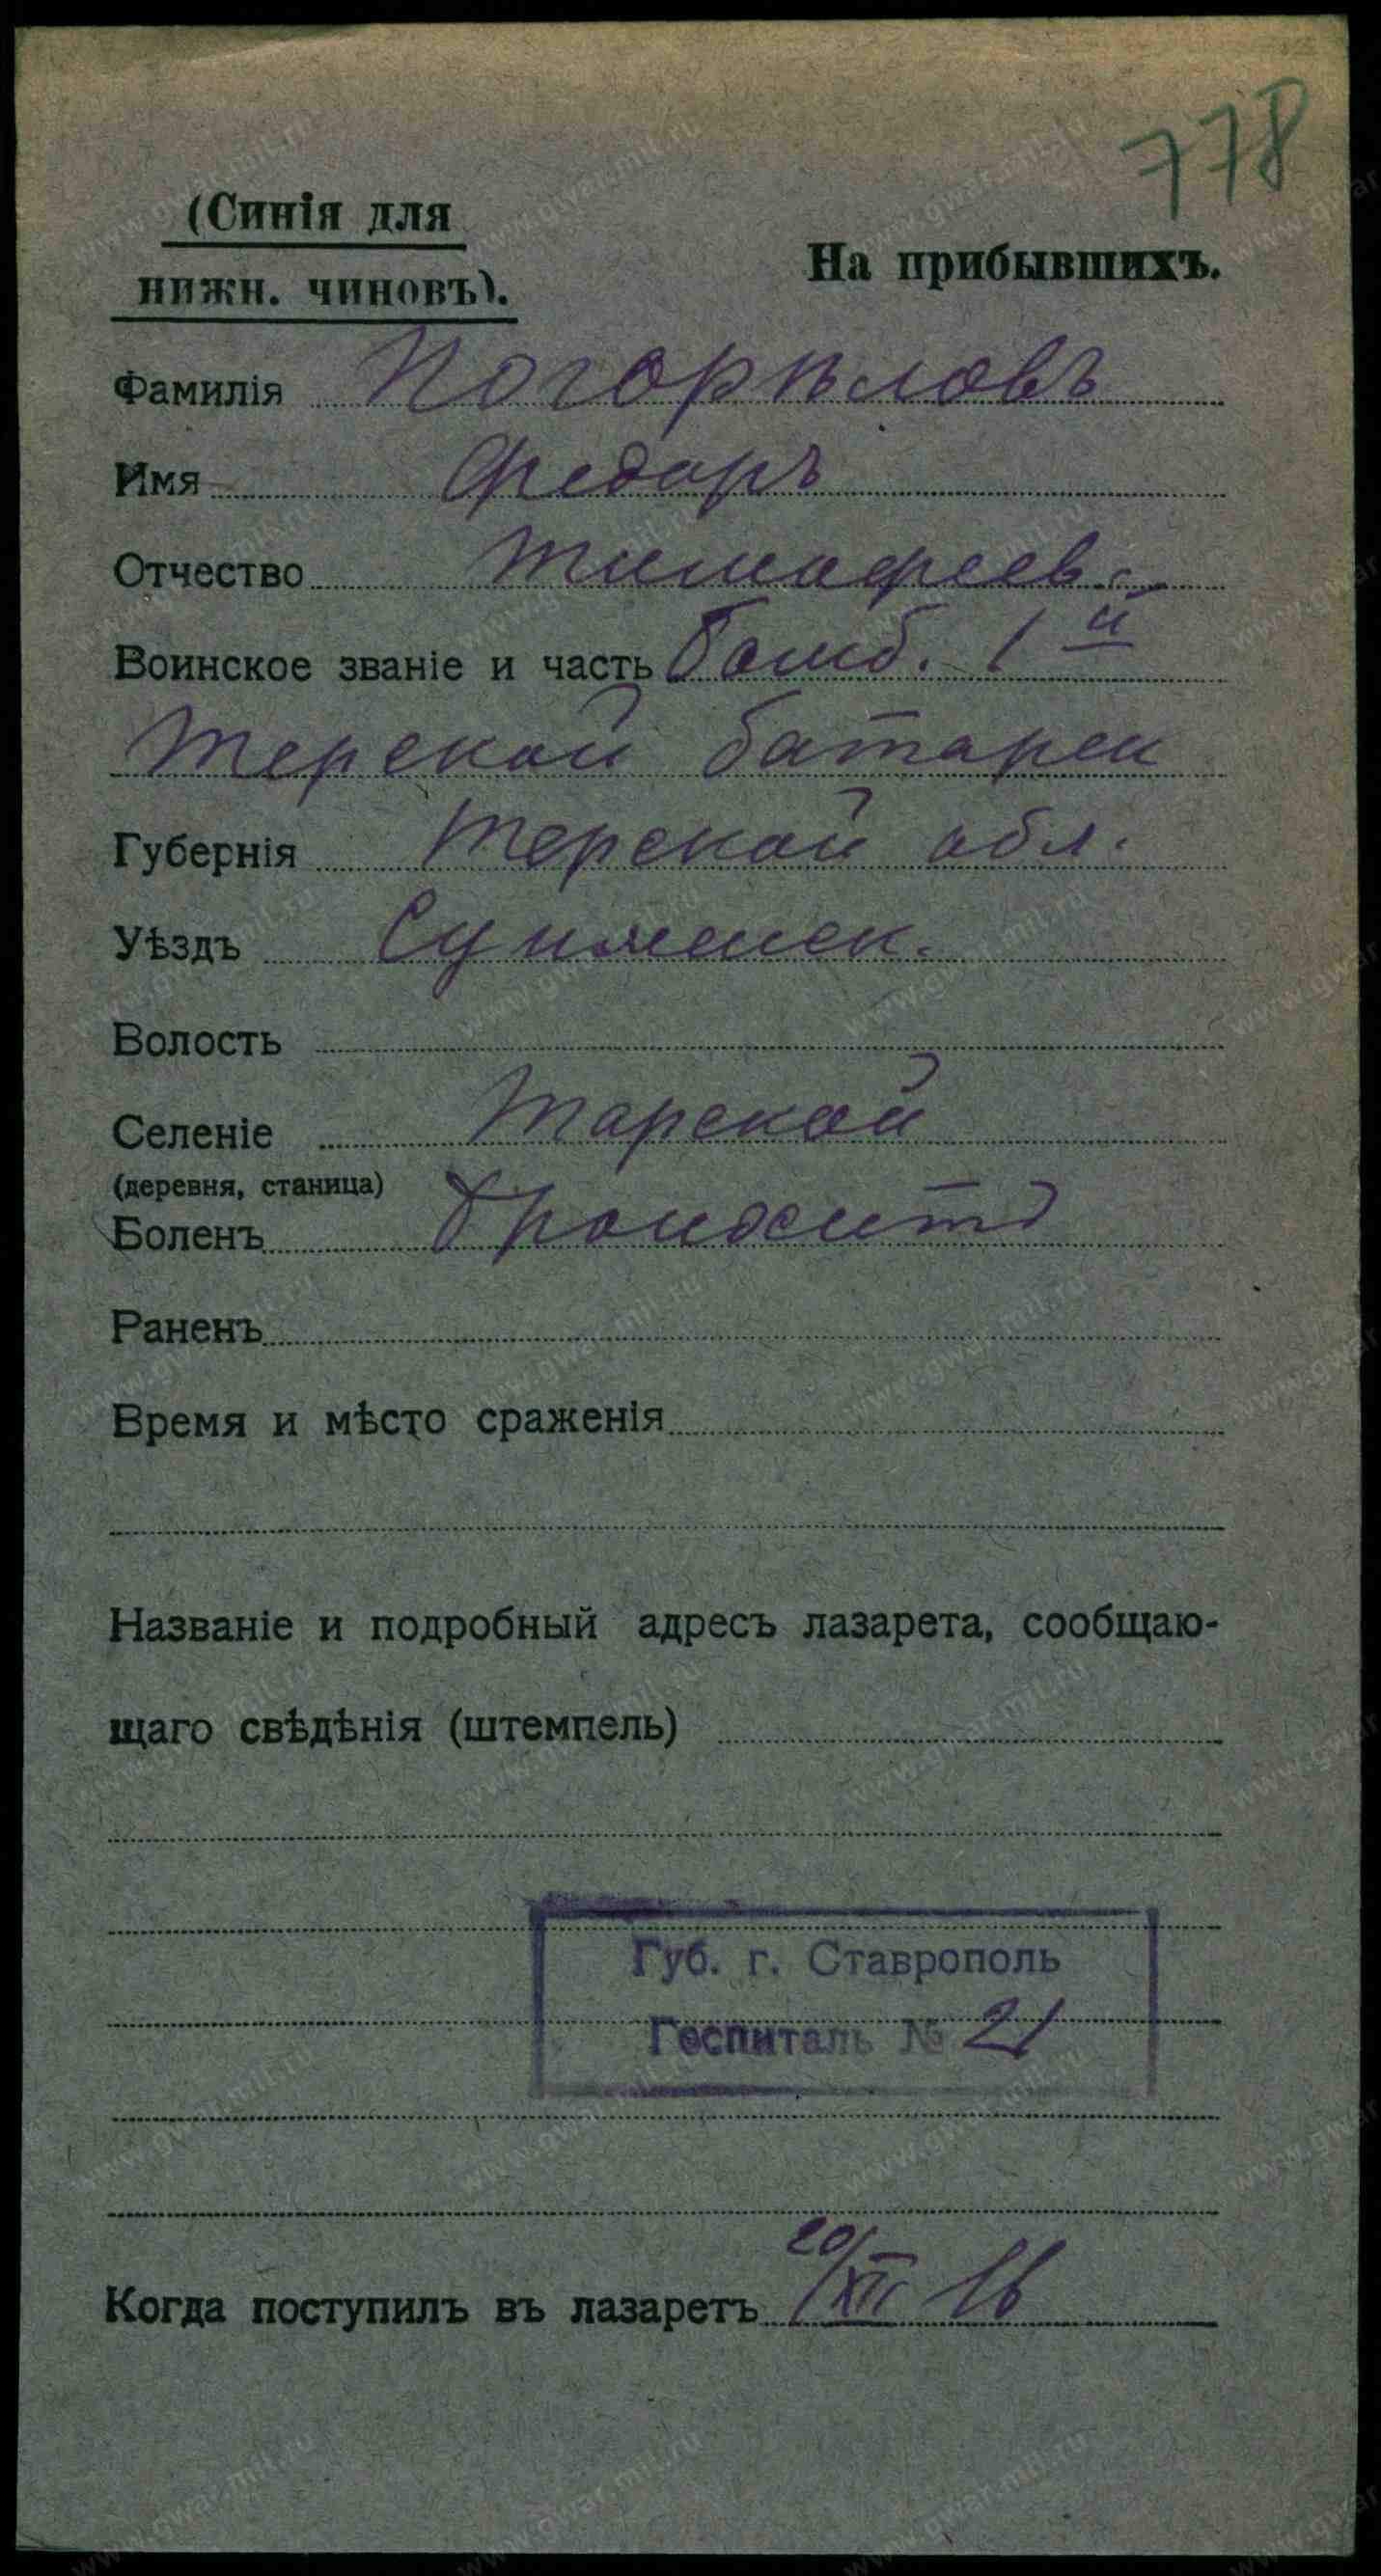 778
(Синія для
нижн. чиновъ).
На прибывшихъ.
Фамилія Погорѣловъ
Имя Федоръ
Отчество Тимофеев.
Воинское званіе и часть Бомб. 1й
Терской батареи
Губернія Терской обл.
Уѣздъ Сунженск.
Волость
Селеніе Тарской
(деревня, станица)
Боленъ Бронхитъ
Раненъ
Время и мѣсто сраженія
Названіе и подробный адресъ лазарета, сообщаю-
щаго свѣдѣнія (штемпель)
Губ. г. Ставрополь
Госпиталь № 21
Когда поступилъ въ лазаретъ 20/XII 16